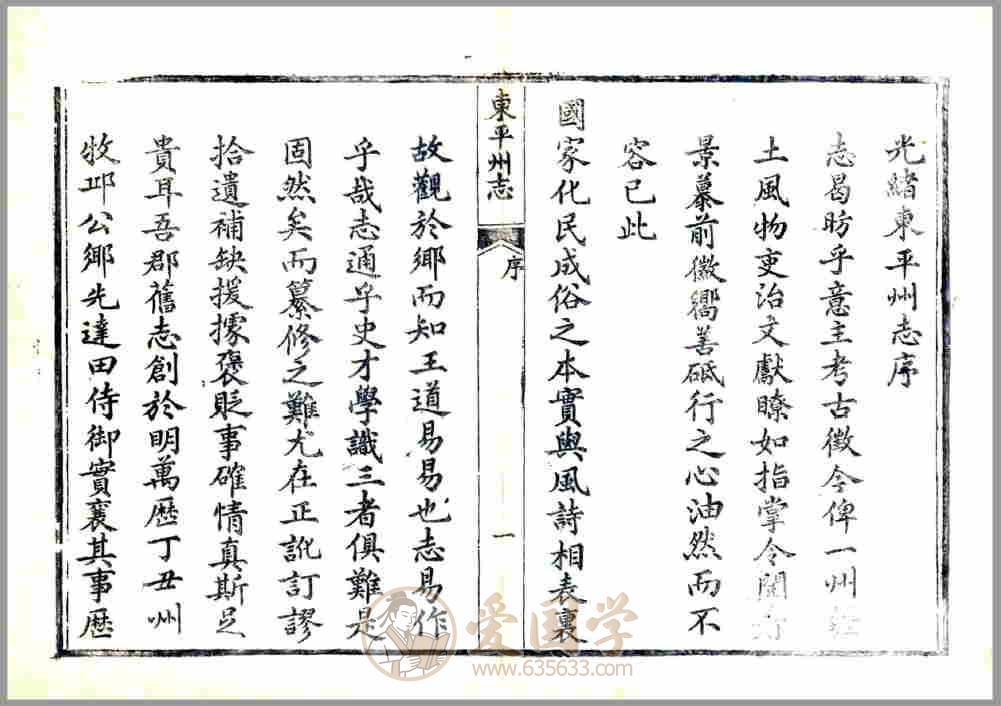 光緒東平州志序
志曷昉乎意主考古徵今俾一州
土風物吏治文獻瞭如指掌令閱
景慕前徽嚮善砥行之心油然而不
容已此
國家化民成俗之本實與風詩相表裏
東平州志
序
一
故觀於鄉而知王道易易也志易作
乎哉志通乎史才學識三者俱難是
固然矣而纂修之難尤在正訛訂謬
拾遺補缺援據褒貶事確情真斯足
貴耳吾郡舊志創於明萬歷丁丑州
牧邱公鄉先達田侍御實襄其事歷
爱国学
www.635633.com